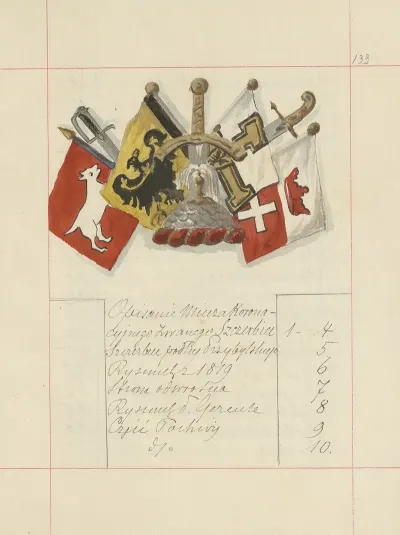 139
Opisanie Miecza Korona-
cyjnego zwanego Szczerbiec 1 - 4
Szczerbiec podług Przybylskiego 5
Rysunek z 1819 6
Strona odwrotna 7
Rysunek 8
Część Pochwy 9
d/o 10.